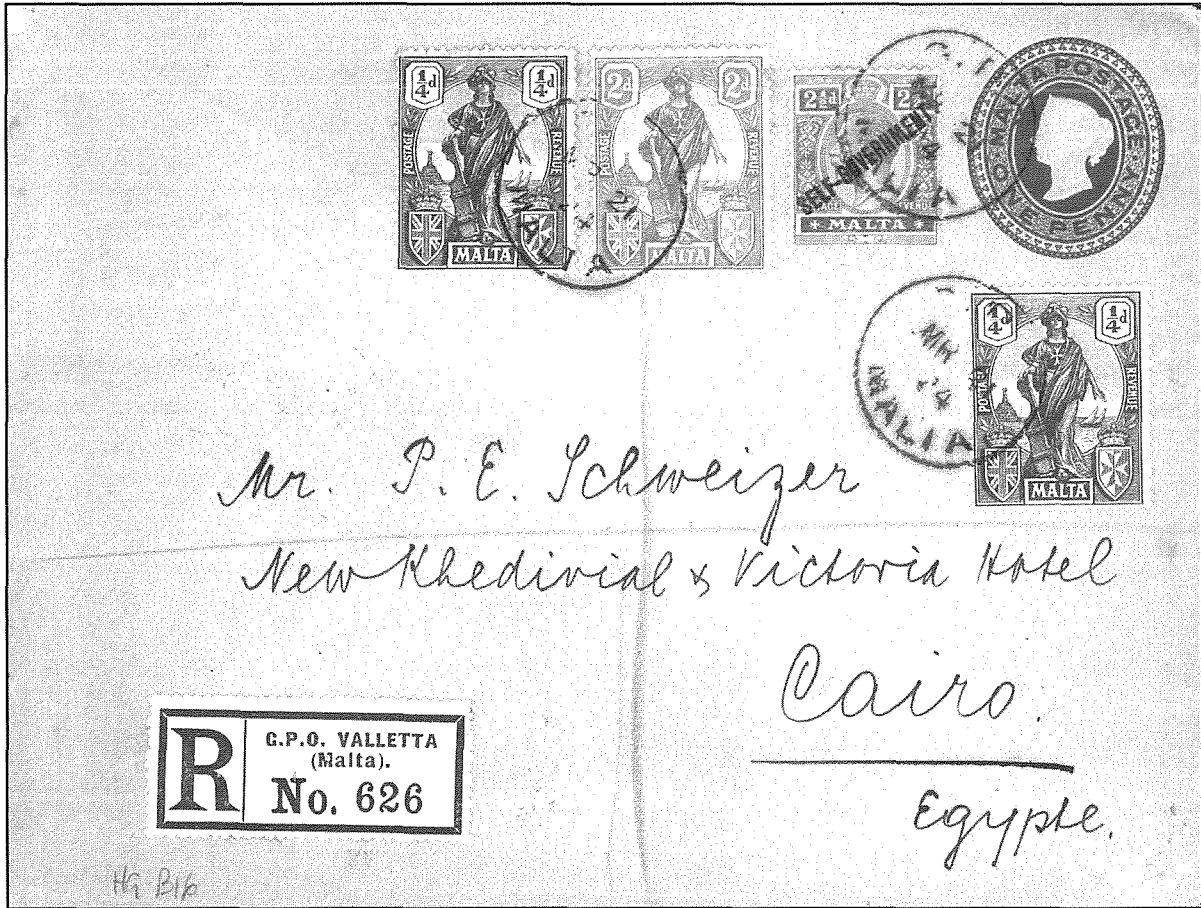 ¼d ¼d
POSTAGE REVENUE
MALTA
2d 2d
2½d
SELF-GOVERNMENT
MALTA
MALTA POSTAGE
ONE PENNY
MALTA
MALTA
MALTA
¼d ¼d
POSTAGE REVENUE
MALTA
Mr. P. E. Schweizer
New Khedivial & Victoria Hotel
Cairo.
Egypte.
R
G.P.O. VALLETTA
(Malta).
No. 626
HG B16